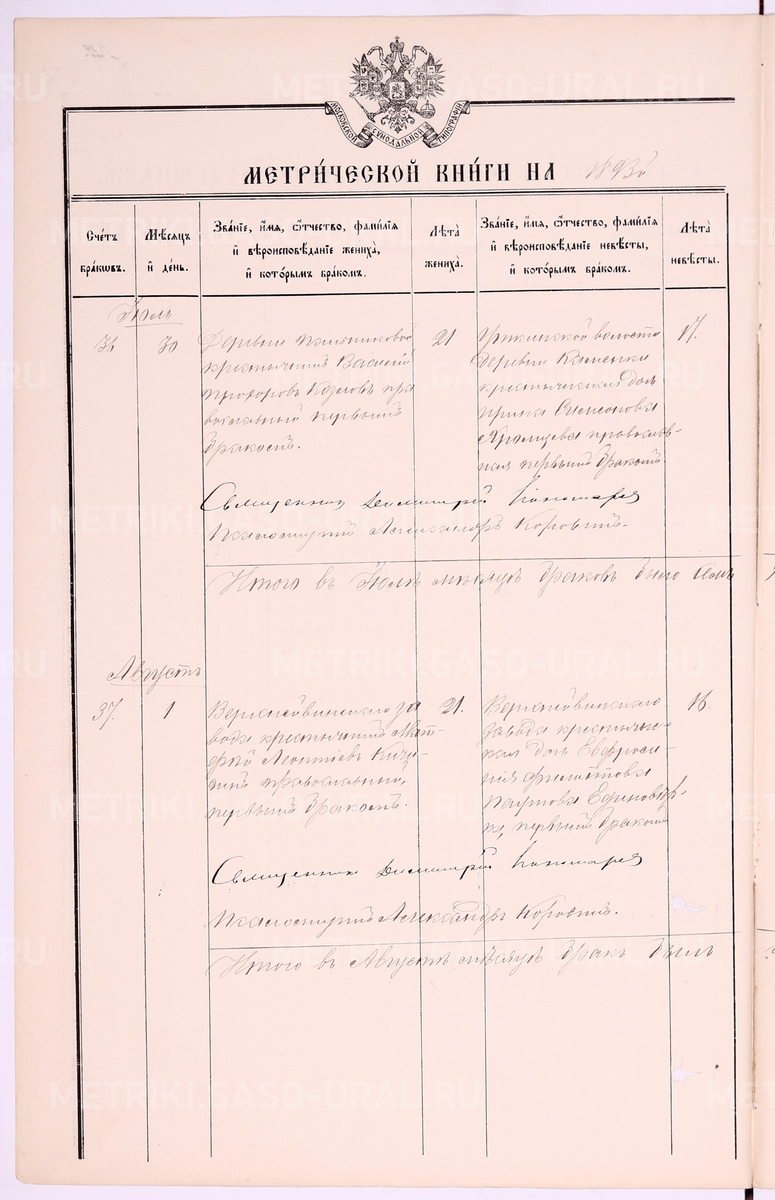 МОСКОВСКОЙ СѴНОДАЛЬНОЙ ТИПОГРАФІИ
МЕТРИ́ЧЕСКОЙ КНИ́ГИ НА 1893й
Сче́тъ бра́кѡвъ.
Мѣ́сяцъ и҆ де́нь.
Зва́нїе, и҆́мѧ, ѻ҆́тчество, фами́лїѧ
и҆ вѣроисповѣ́данїе жениха̀,
и҆ кото́рымъ бра́комъ.
Лѣ́та жениха̀.
Зва́нїе, и҆́мѧ, ѻ҆́тчество, фами́лїѧ
и҆ вѣроисповѣ́данїе невѣ́сты,
и҆ кото́рымъ бра́комъ.
Лѣ́та невѣ́сты.
Іюль
36 30
Деревни Пальниковой
крестьянинъ Василій
Прохоровъ Козловъ пра
вославный первымъ
бракомъ.
21
волости
Деревни Каменки
крестьянская дочь
Ирина Симеонова
православ-
ная первымъ бракомъ.
17.
Священникъ Димитрій Пономаревъ
Псаломщикъ Александръ Коровинъ.
Итого въ Іюлѣ мѣсяцѣ браковъ было
Августъ
37. 1
Верхнейвинскаго за
вода крестьянинъ Мат-
фей Леонтіевъ
православный,
первымъ бракомъ.
21.
Верхнейвинскаго
завода крестьянс-
кая дочь Евфроси-
нія Филиппова
Паутова Единовѣр-
ка, первымъ бракомъ
16.
Священникъ Димитрій Пономаревъ
Псаломщикъ Александръ Коровинъ.
Итого въ Августѣ мѣсяцѣ бракъ былъ
METRIKI.GASO-URAL.RU